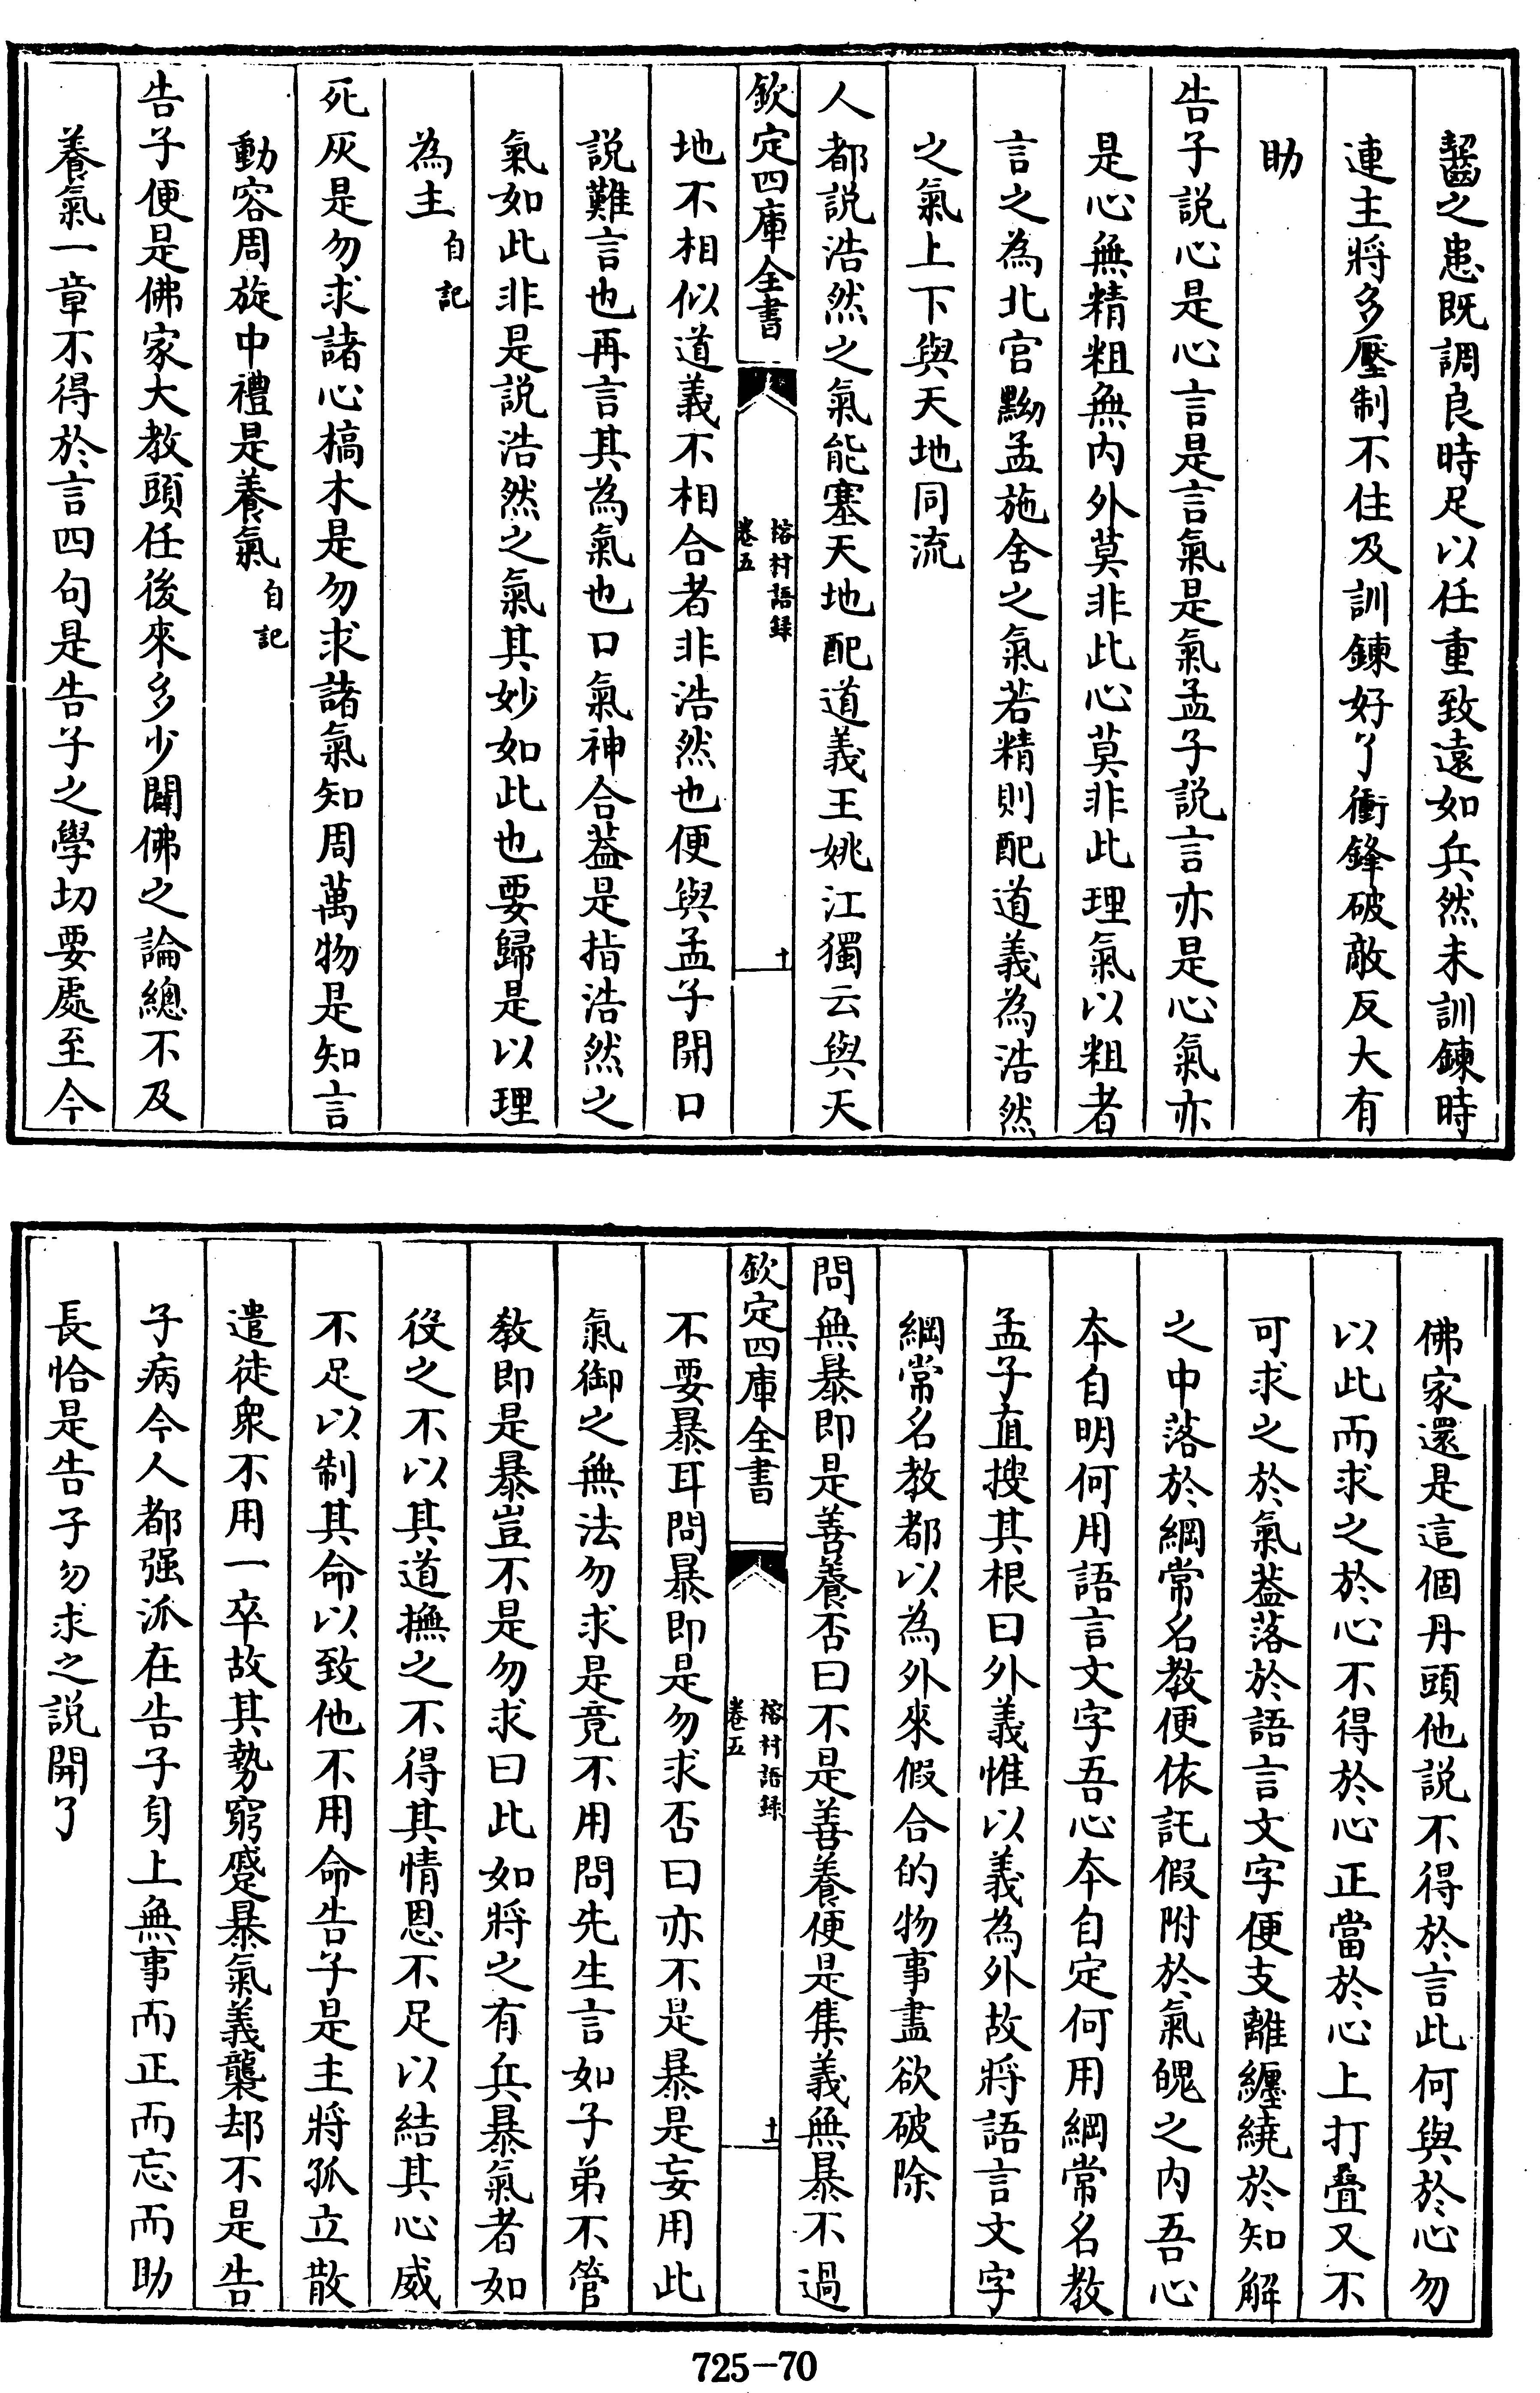 齧之患既調良時足以任重致遠如兵然未訓鍊時
連主將多壓制不住及訓鍊好了衝鋒破敵反大有
助
告子說心是心言是言氣是氣孟子說言亦是心氣亦
是心無精粗無內外莫非此心莫非此理氣以粗者
言之為北宮黝孟施舍之氣若精則配道義為浩然
之氣上下與天地同流
人都說浩然之氣能塞天地配道義王姚江獨云與天
欽定四庫全書
榕村語録
卷五
十
地不相似道義不相合者非浩然也便與孟子開口
說難言也再言其為氣也口氣神合葢是指浩然之
氣如此非是說浩然之氣其妙如此也要歸是以理
為主自記
死灰是勿求諸心槁木是勿求諸氣知周萬物是知言
動容周旋中禮是養氣自記
告子便是佛家大教頭任後來多少闢佛之論總不及
養氣一章不得於言四句是告子之學切要處至今
佛家還是這個丹頭他說不得於言此何與於心勿
以此而求之於心不得於心正當於心上打疊又不
可求之於氣葢落於語言文字便支離纏繞於知解
之中落於綱常名教便依託假附於氣魄之內吾心
本自明何用語言文字吾心本自定何用綱常名教
孟子直搜其根曰外義惟以義為外故將語言文字
綱常名教都以為外來假合的物事盡欲破除
問無暴即是善養否曰不是善養便是集義無暴不過
欽定四庫全書
榕村語録
卷五
十一
不要暴耳問暴即是勿求否曰亦不是暴是妄用此
氣御之無法勿求是竟不用問先生言如子弟不管
教即是暴豈不是勿求曰此如將之有兵暴氣者如
役之不以其道撫之不得其情恩不足以結其心威
不足以制其命以致他不用命告子是主將孤立散
遣徒衆不用一卒故其勢窮蹙暴氣義襲却不是告
子病今人都强派在告子身上無事而正而忘而助
長恰是告子勿求之說開了
725-70